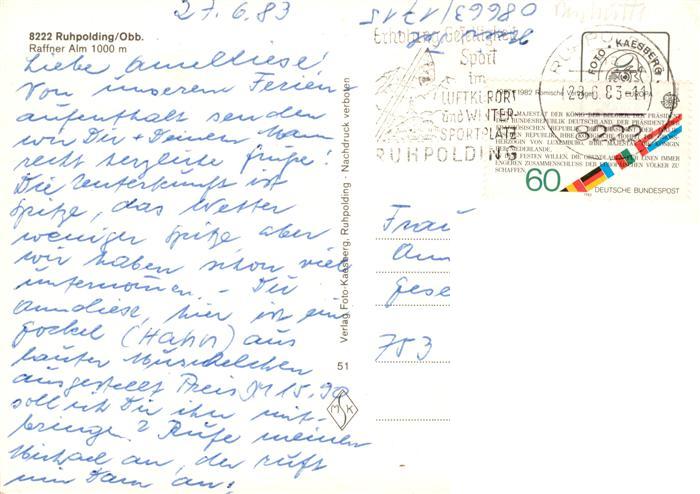 27.6.83
08663/1715
8222 Ruhpolding/Obb.
Raffner Alm 1000 m
Liebe Anneliese!
Von unserem Ferien-
aufenthalt senden
wir Dir u. Deinem Mann
recht herzliche Grüße!
Die Unterkunft ist
spitze, das Wetter
weniger spitze, aber
wir haben schon viel
unternommen. - Du
Anneliese, hier ist ein
Gockel (Hahn) aus
lauter Muschelchen
ausgestellt Preis DM 15.90
soll ich Dir ihn mit-
bringen? Rufe meinen
Michael an, der ruft
mir Dann an!
Verlag Foto-Kaesberg, Ruhpolding - Nachdruck verboten
51
MSK
Erholung Geselligkeit
Sport
im
LUFTKURORT
und WINTER-
SPORTPLATZ
RUHPOLDING
FOTO - KAESBERG
28.6.83-11
8222
1982 Römische Verträge EUROPA
MAJESTÄT DER KÖNIG DER BELGIER, DER PRÄSIDENT
BUNDESREPUBLIK DEUTSCHLAND, DER PRÄSIDENT
FRANZÖSISCHEN REPUBLIK
HERZOGIN VON LUXEMBURG, IHRE MAJESTÄT DIE KÖNIGIN
NIEDERLANDE,
FESTEN WILLEN, DIE GRUNDLAGEN FÜR EINEN IMMER
ENGEREN ZUSAMMENSCHLUSS DER EUROPÄISCHEN VÖLKER ZU
SCHAFFEN
60
DEUTSCHE BUNDESPOST
Frau
Ann
Gese
753